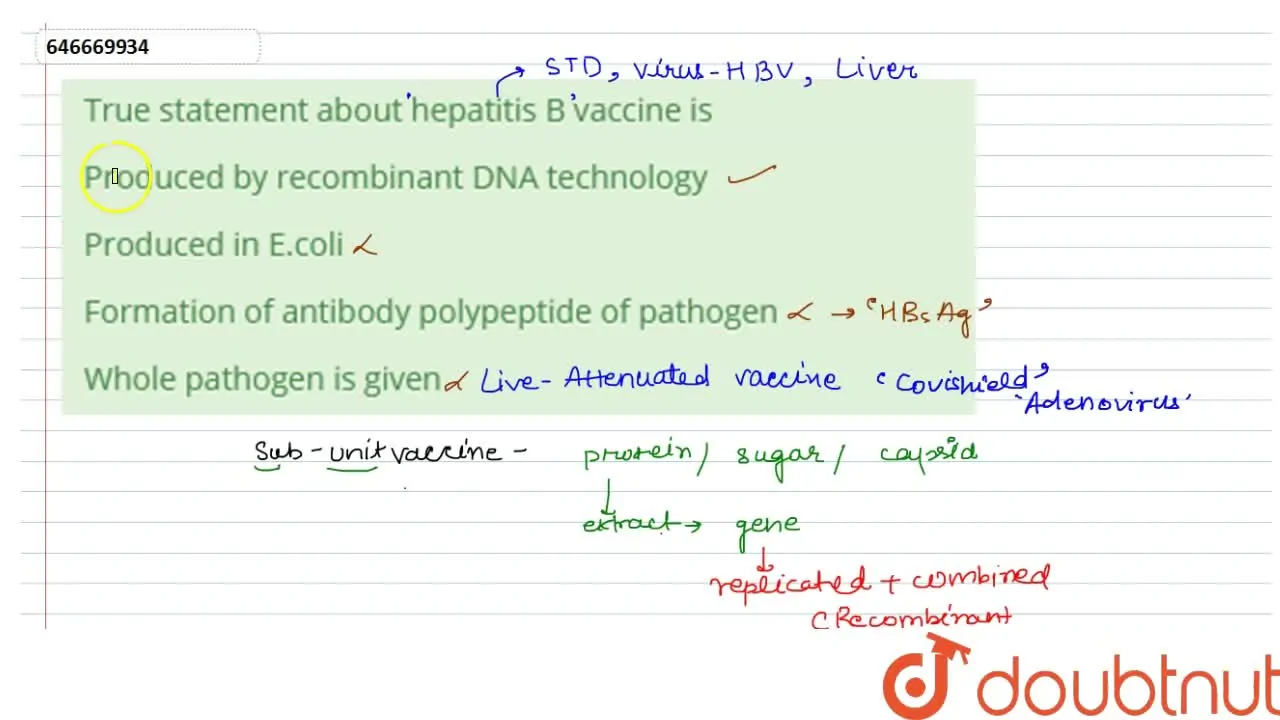 646669934
STD, Virus-HBV, Liver
True statement about 'hepatitis B' vaccine is
Produced by recombinant DNA technology
Produced in E.coli
Formation of antibody polypeptide of pathogen → 'HBsAg'
Whole pathogen is given Live-Attenuated vaccine 'Covishield'
'Adenovirus'
Sub-unit vaccine - protein/ sugar/ capsid
extract → gene
replicated + combined
(Recombinant
doubtnut